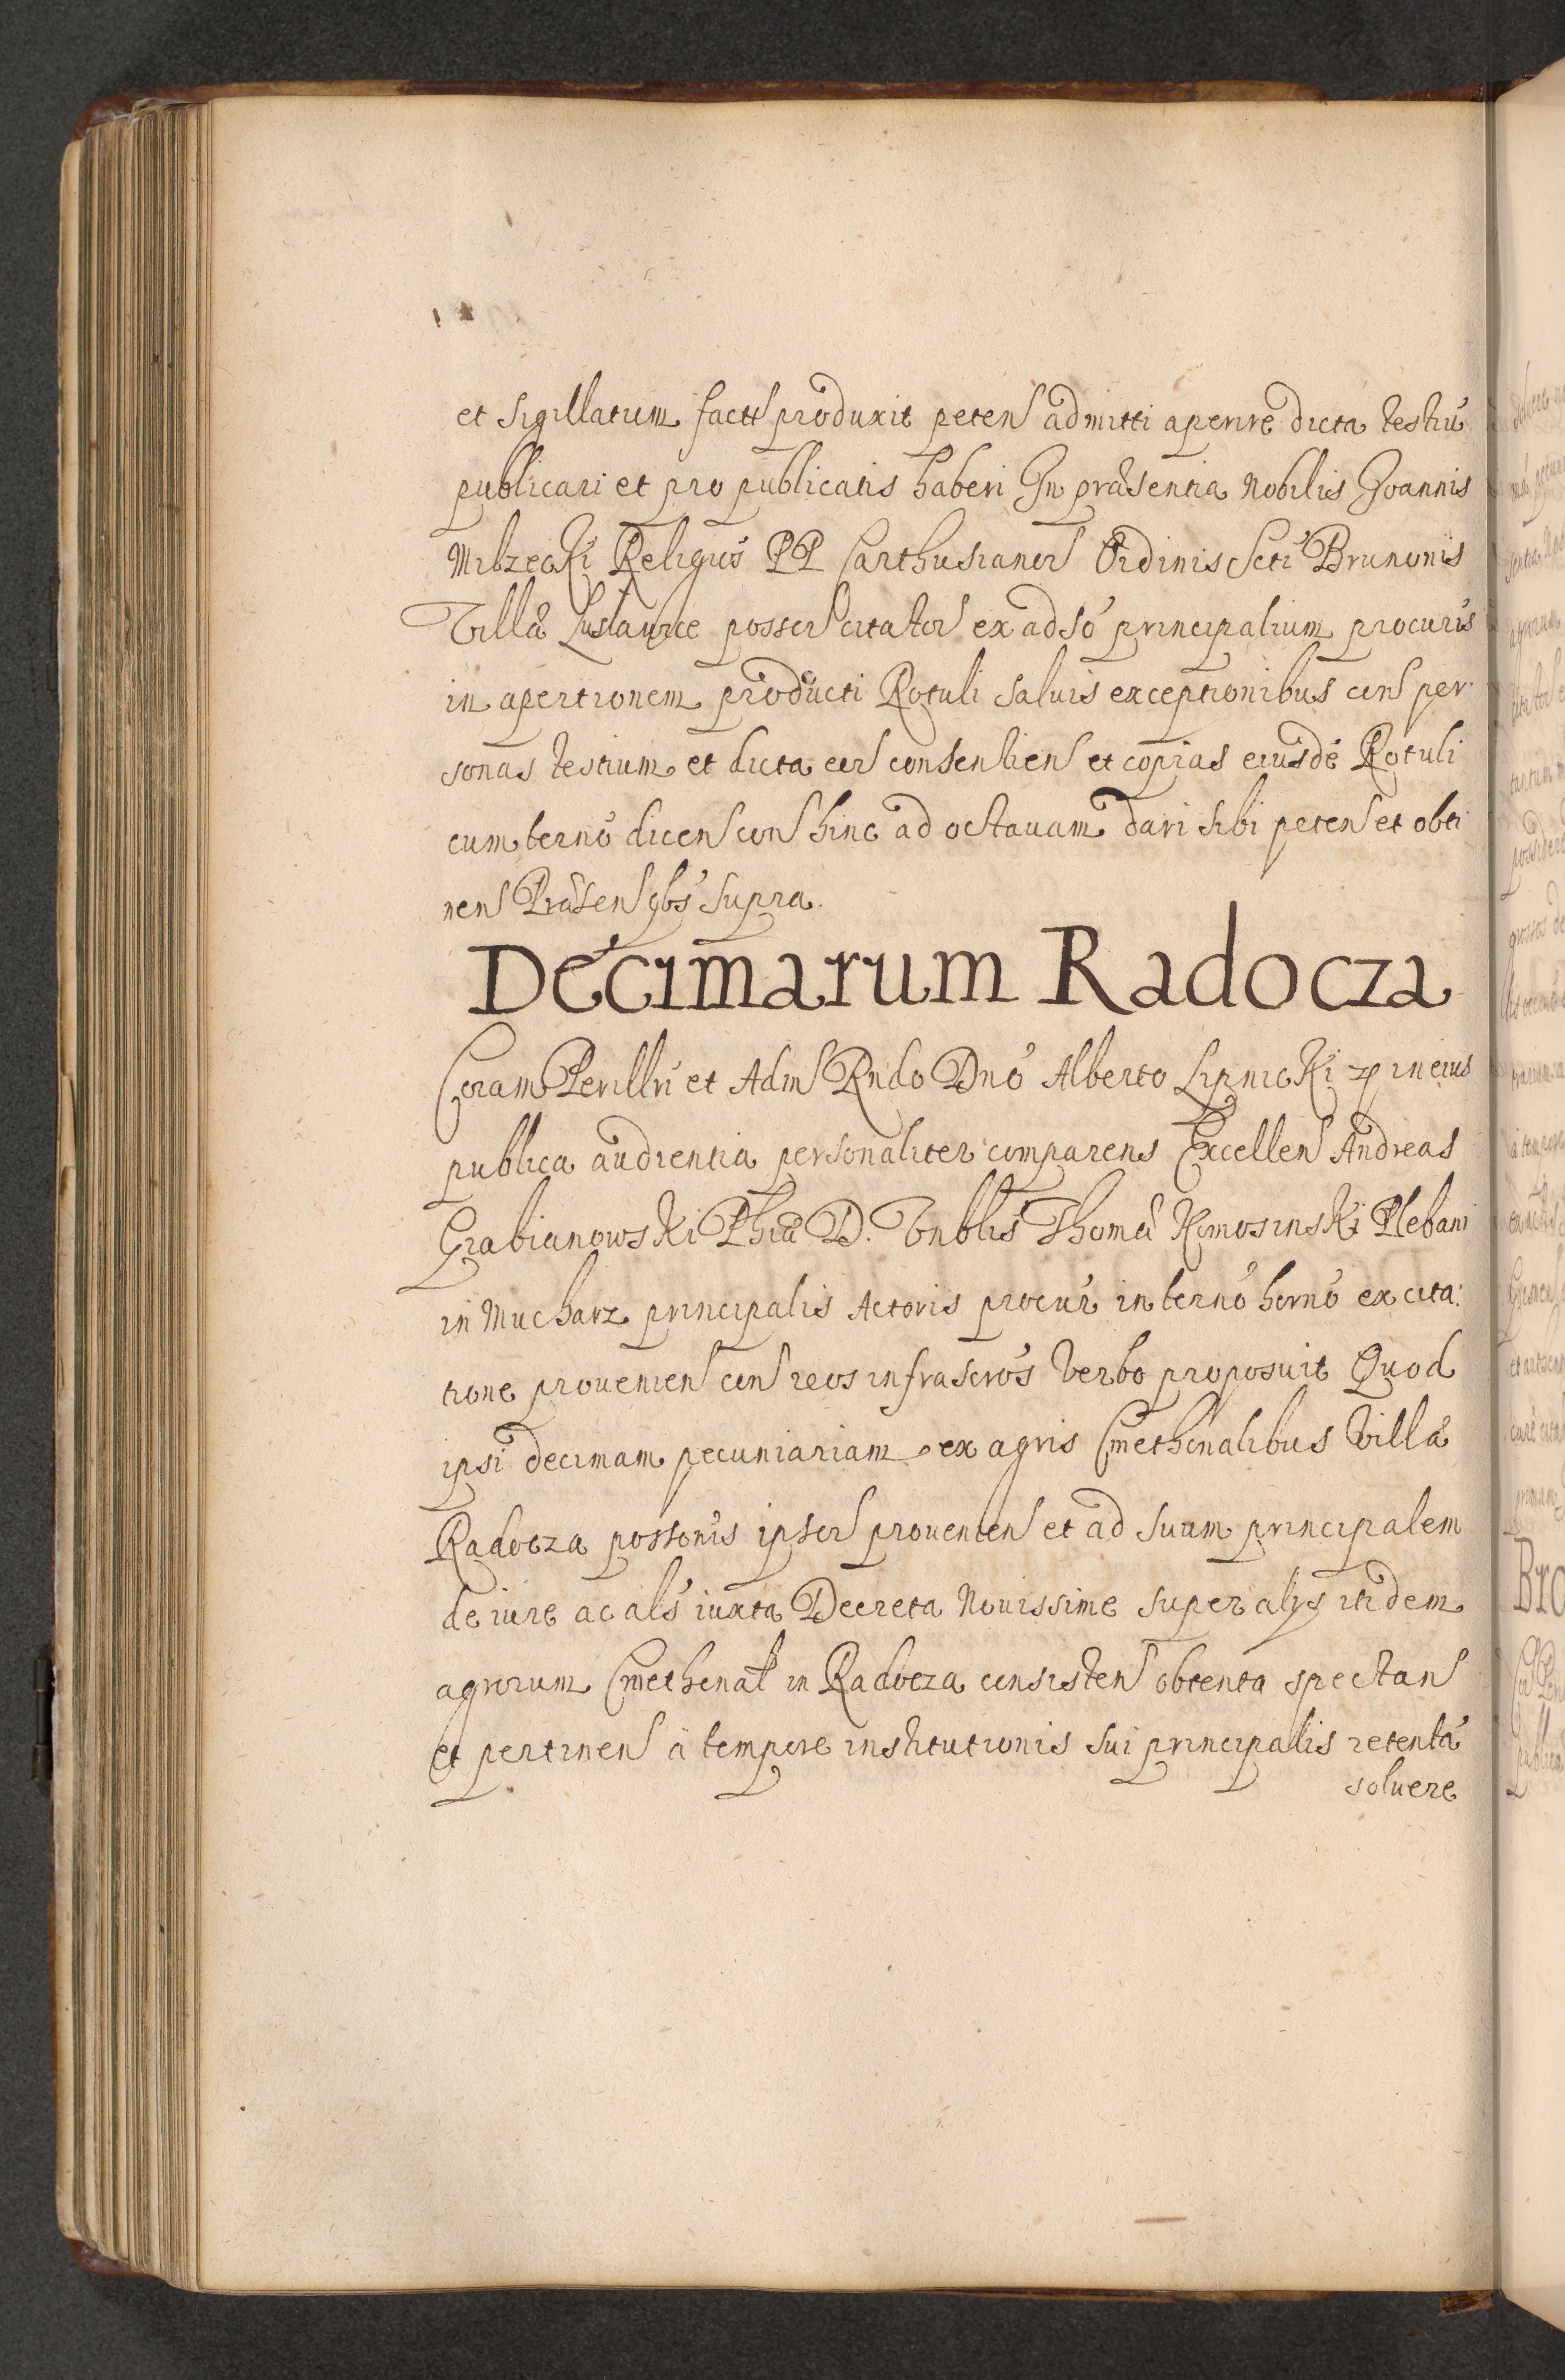 et sigillatum factt produxit peten admitti aperire dicta testiū
publicari et pro publicatis haberi In præsentia Nobilis Joannis
Milzecki Religiōs PP Carthusianor Ordinis Scti Brunonis
Villæ Luslawice possor citator ex adsō principalium procuris
in apertionem producti Rotuli saluis exceptionibus con per
sonas testium et dicta eor consentien et copias eiusdē Rotuli
cum ternō dicen con hinc ad octauam dari sibi peten et obti
nen Præsen qbs supra.
Decimarum Radocza
Coram Perillri et Adm Rndo Dnō Alberto Lipnicki in eius
publica audientia personaliter comparens Excellen Andreas
Grabianowski Phiæ D. Vnblis Thomæ Komosinski Plebani
in Mucharz principalis Actoris procur in ternō hornō ex cita:
tione prouenien con reos infrascros verbo proposuit Quod
ipsi decimam pecuniariam ex agris Cmethonalibus Villæ
Radocza possonis ipsor prouenien et ad suum principalem
de iure ac als iuxta Decreta Nouissime super alys itidem
agrorum Cmethonal in Radocza consisten obtenta spectan
et pertinen a tempore institutionis sui principalis retentā
soluere